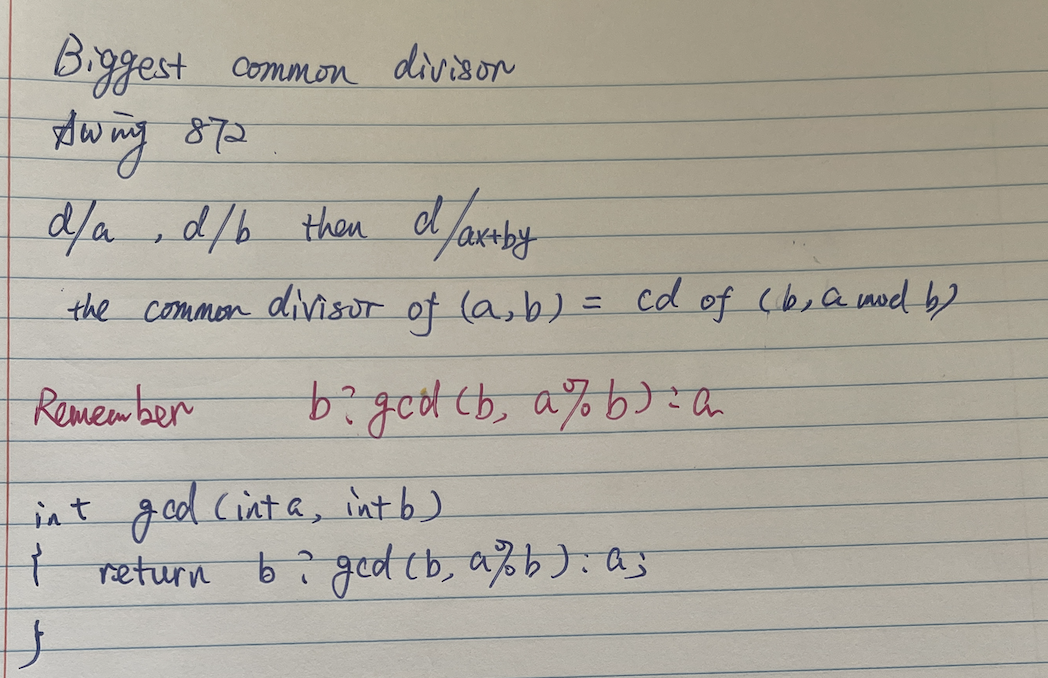 Biggest common divison
Awing 872
d/a , d/b then d/ax+by
the common divisor of (a,b) = cd of (b, a mod b)
Remember b?gcd(b, a%b):a
int gcd(int a, int b)
{ return b?gcd(b, a%b):a;
}